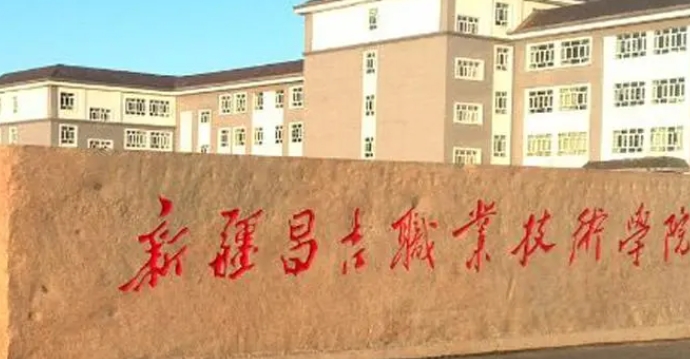 新疆昌吉職業技術學院